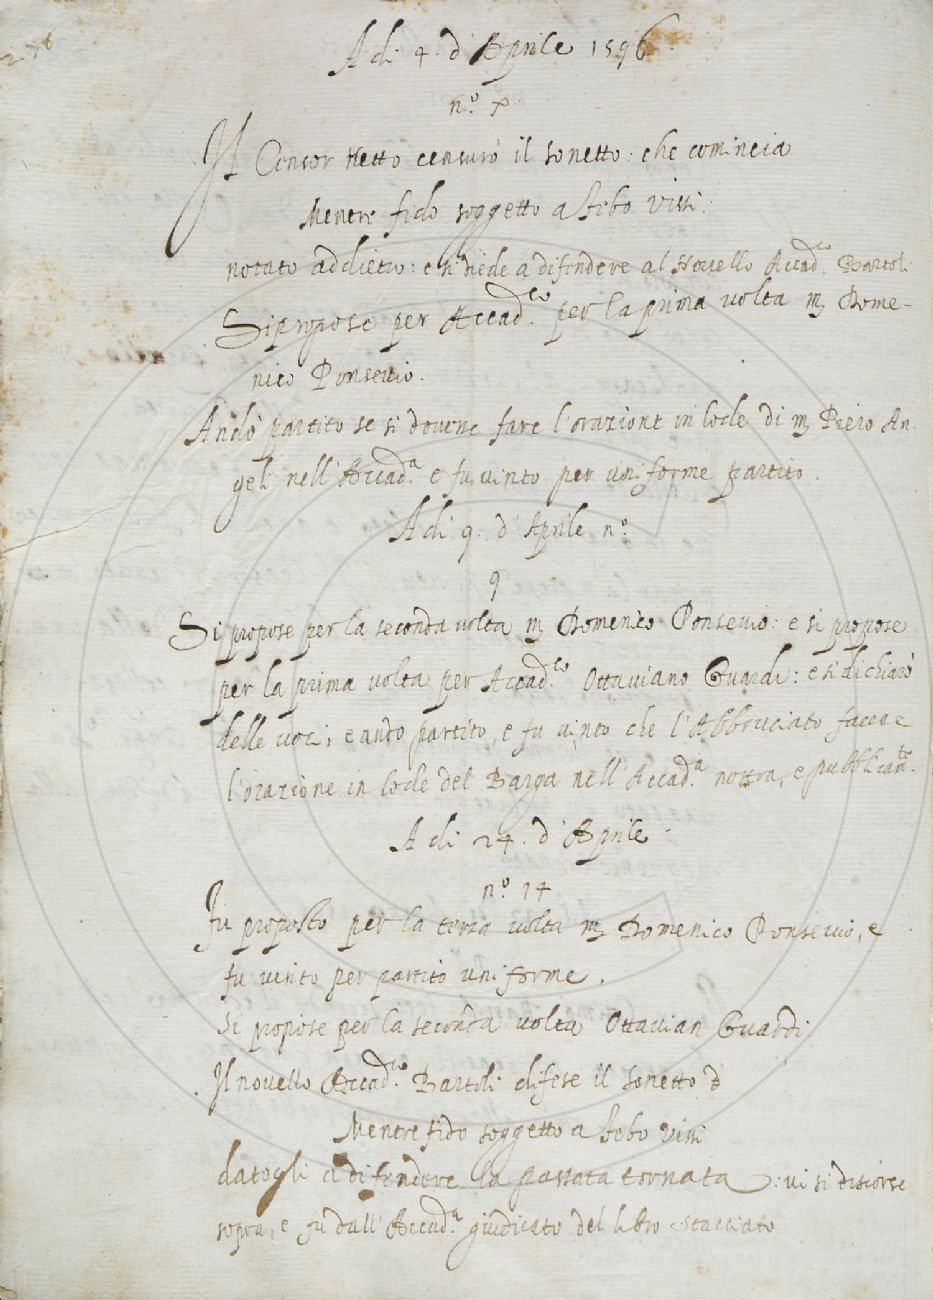 276
A di 4. d'Aprile 1596
n.º 7
Il Censor Netto censurò il sonetto: che comincia
Mentre fido soggetto a Febo vissi:
notato addietro: e si diede a difendere al Novello Accad.co Bartoli
Si propose per Accad.co per la prima volta m Dome-
nico Ponsevio.
Andò partito se si dovesse fare l'orazione in lode di m Piero An-
geli nell'Accad.a e fu vinto per uniforme partito.
A di 9. d'Aprile n.º
9
Si propose per la seconda volta m Domenico Ponsevio: e si propose
per la prima volta per Accad.co Ottaviano Guardi: e si dichiarò
delle voci; e andò partito, e fu vinto che l'Abbruciato facesse
l'orazione in lode del Barga nell'Accad.a nostra, e pubblicam.te
A di 24. d'Aprile.
n.º 14
Fu proposto per la terza volta m Domenico Ponsevio, e
fu vinto per partito uniforme.
Si propose per la seconda volta Ottavian Guardi.
Il novello Accad.co Bartoli difese il sonetto
Mentre fido soggetto a Febo vissi
datogli a difendere la passata tornata: vi si discorse
sopra, e fu dall'Accad.a giudicato del libro stacciato